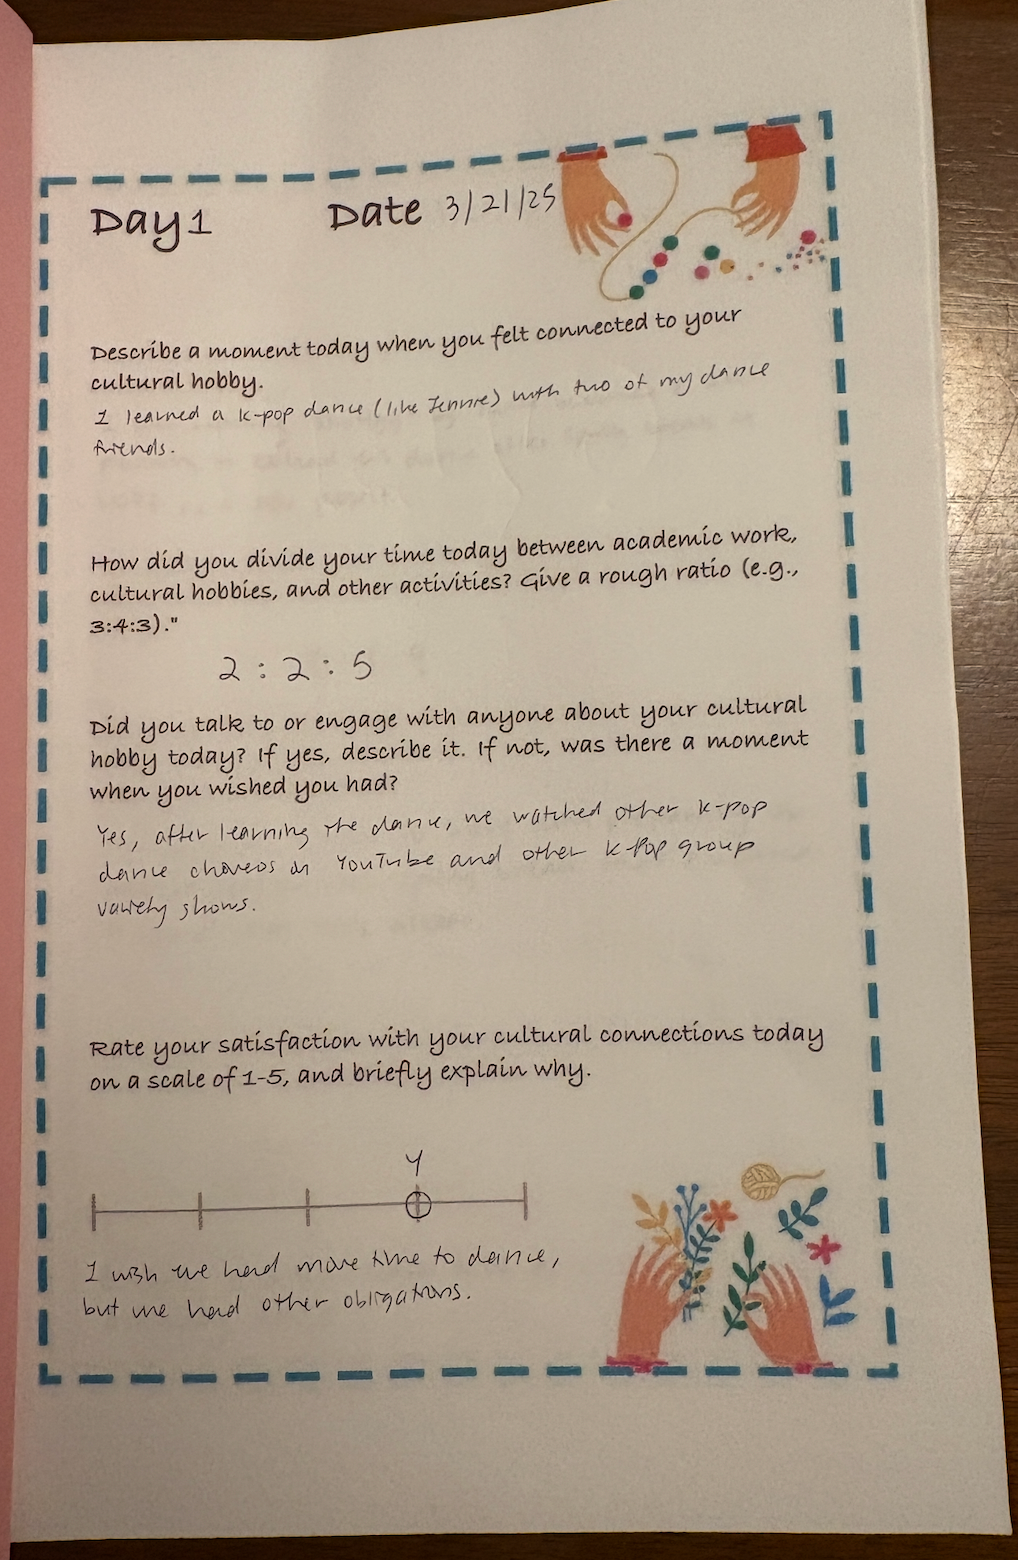 Day1 Date 3/21/25
Describe a moment today when you felt connected to your
cultural hobby.
I learned a k-pop dance (like Jennie) with two of my dance
friends.
How did you divide your time today between academic work,
cultural hobbies, and other activities? Give a rough ratio (e.g.,
3:4:3)."
2 : 2 : 5
Did you talk to or engage with anyone about your cultural
hobby today? If yes, describe it. If not, was there a moment
when you wished you had?
Yes, after learning the dance, we watched other k-pop
dance choreos on YouTube and other k-pop group
variety shows.
Rate your satisfaction with your cultural connections today
on a scale of 1-5, and briefly explain why.
4
I wish we had more time to dance,
but we had other obligations.